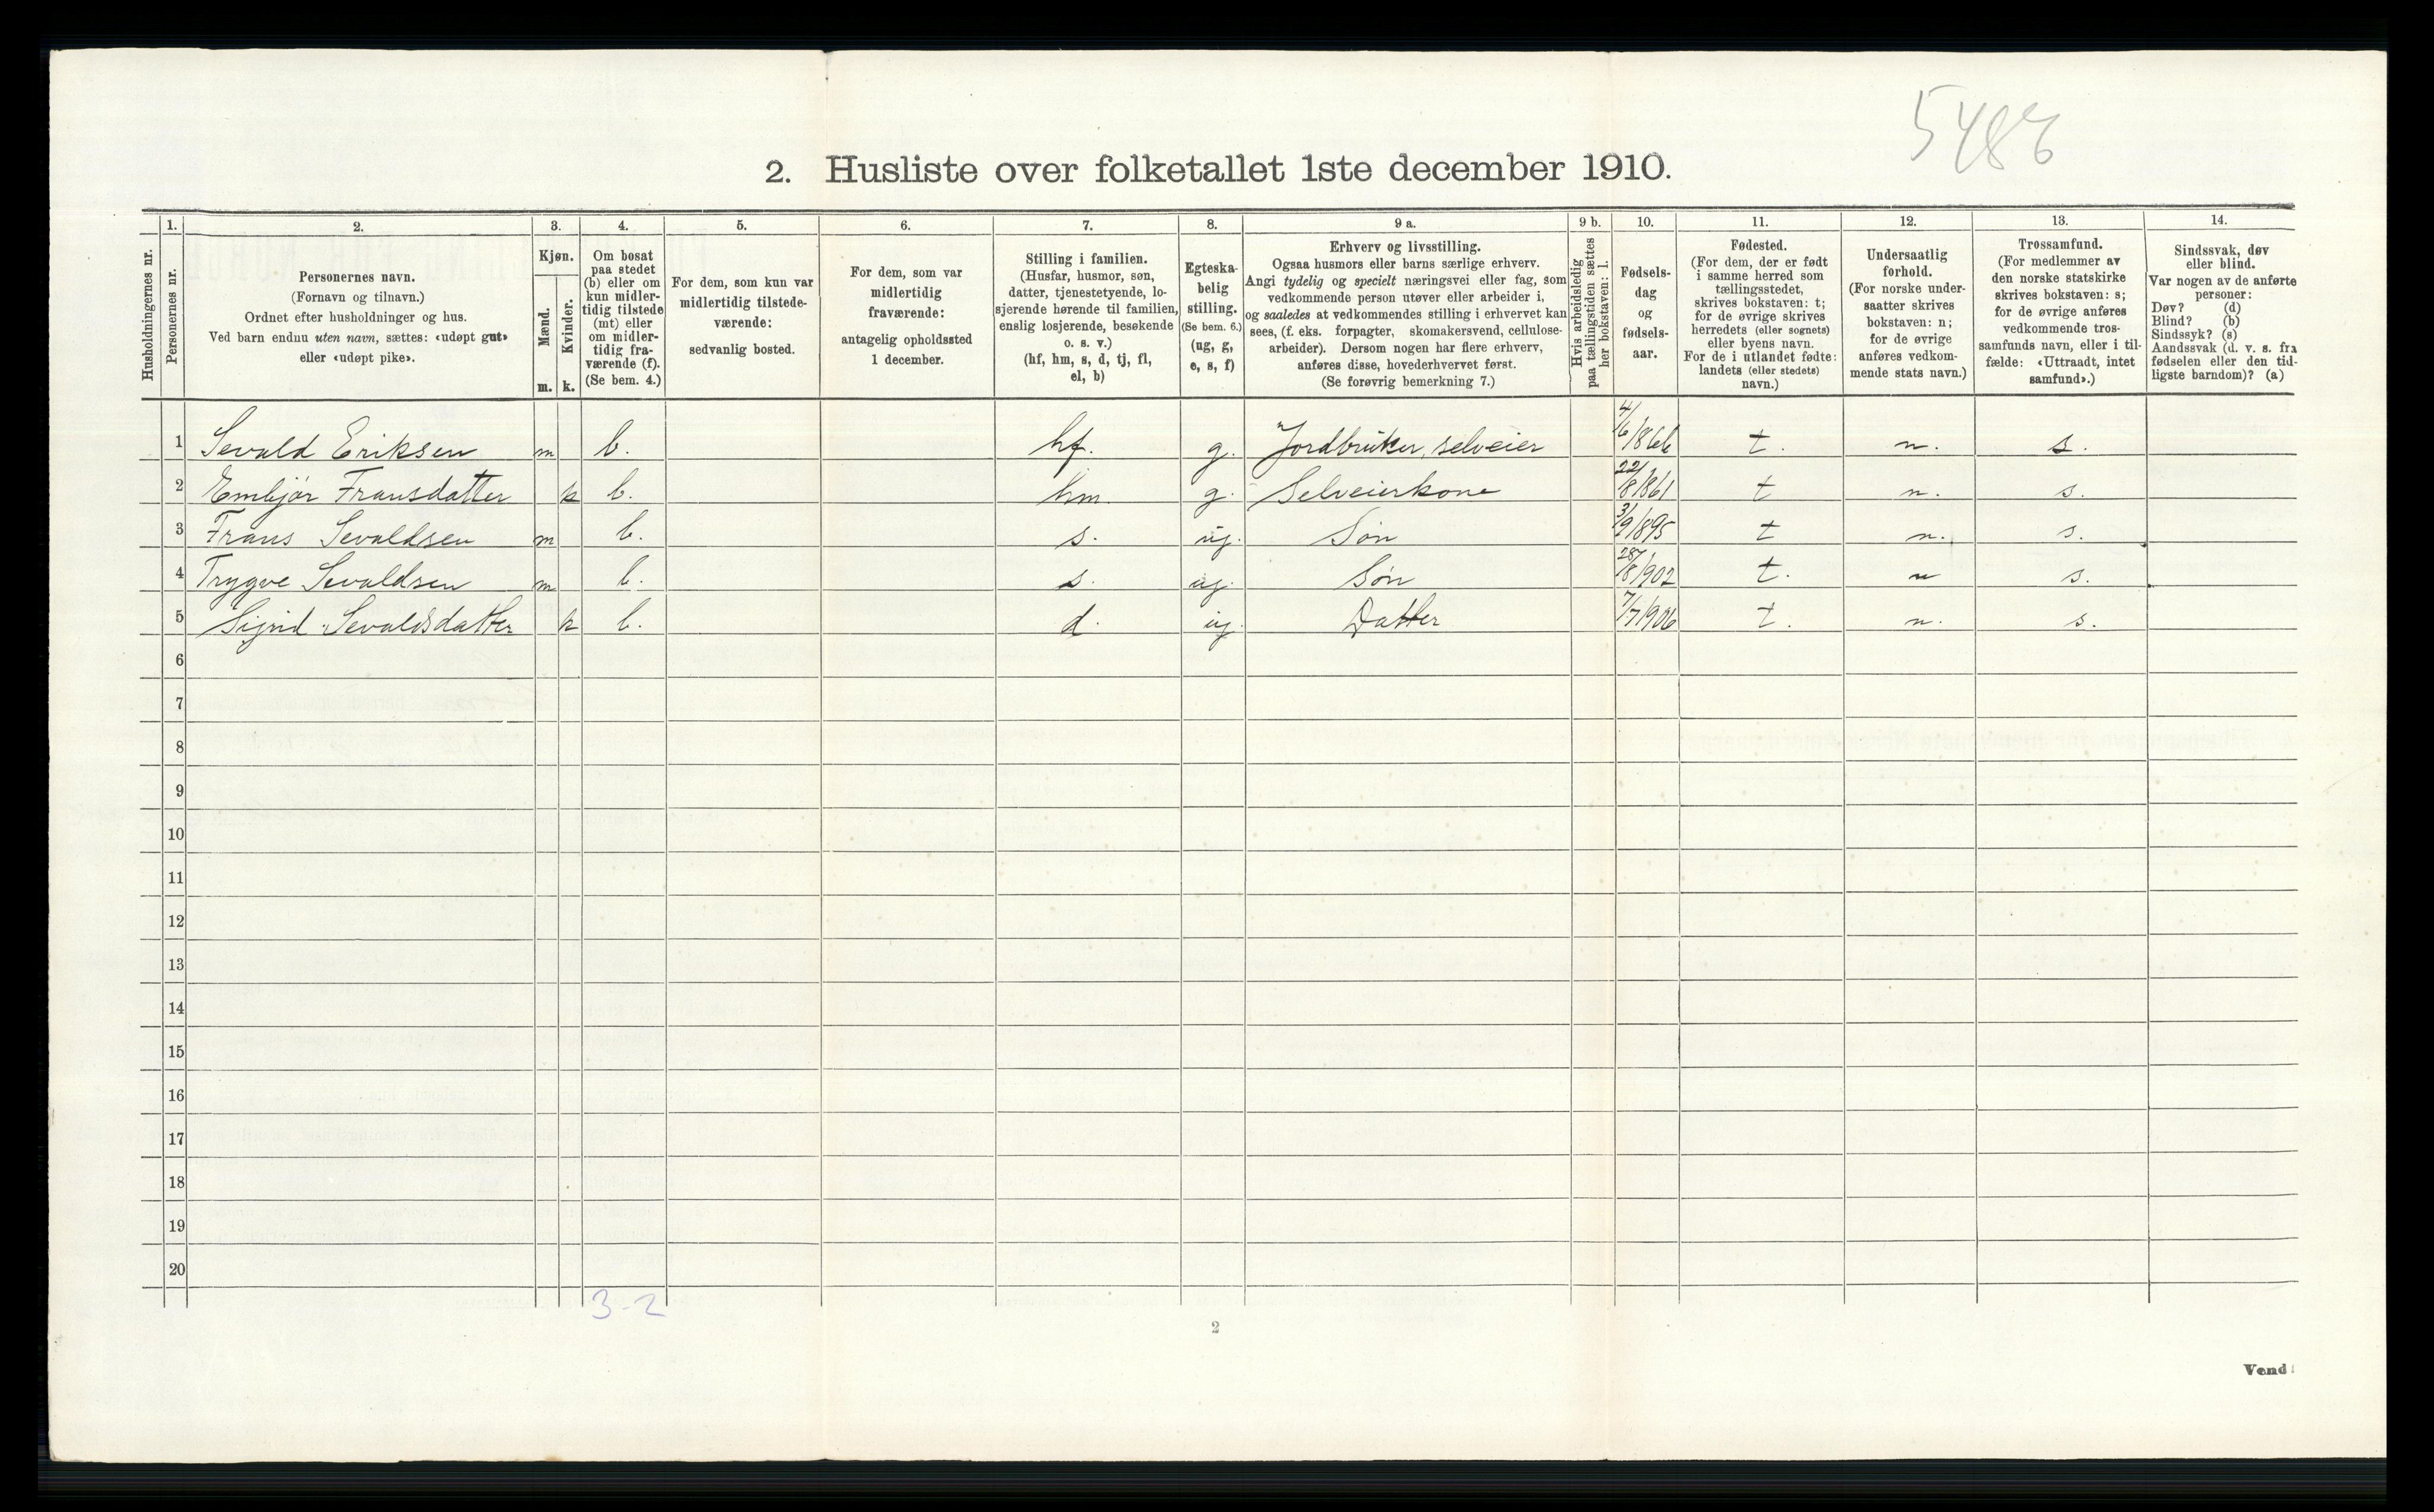 5486
2. Husliste over folketallet 1ste december 1910.
Husholdningernes nr.
1.
Personernes nr.
2.
Personernes navn.
(Fornavn og tilnavn.)
Ordnet efter husholdninger og hus.
Ved barn endnu uten navn, sættes: «udøpt gut»
eller «udøpt pike».
3.
Kjøn.
Mænd.
m.
Kvinder.
k.
4.
Om bosat
paa stedet
(b) eller om
kun midler-
tidig tilstede
(mt) eller
om midler-
tidig fra-
værende (f).
(Se bem. 4.)
5.
For dem, som kun var
midlertidig tilstede-
værende:
sedvanlig bosted.
6.
For dem, som var
midlertidig
fraværende:
antagelig opholdssted
1 december.
7.
Stilling i familien.
(Husfar, husmor, søn,
datter, tjenestetyende, lo-
sjerende hørende til familien,
enslig losjerende, besøkende
o. s. v.)
(hf, hm, s, d, tj, fl,
el, b)
8.
Egteska-
belig
stilling.
(Se bem. 6.)
(ug, g,
e, s, f)
9 a.
Erhverv og livsstilling.
Ogsaa husmors eller barns særlige erhverv.
Angi tydelig og specielt næringsvei eller fag, som
vedkommende person utøver eller arbeider i,
og saaledes at vedkommendes stilling i erhvervet kan
sees, (f. eks. forpagter, skomakersvend, cellulose-
arbeider). Dersom nogen har flere erhverv,
anføres disse, hovederhvervet først.
(Se forøvrig bemerkning 7.)
9 b.
Hvis arbeidsledig
paa tællingstiden sættes
her bokstaven: l.
10.
Fødsels-
dag
og
fødsels-
aar.
11.
Fødested.
(For dem, der er født
i samme herred som
tællingsstedet,
skrives bokstaven: t;
for de øvrige skrives
herredets (eller sognets)
eller byens navn.
For de i utlandet fødte:
landets (eller stedets)
navn.)
12.
Undersaatlig
forhold.
(For norske under-
saatter skrives
bokstaven: n;
for de øvrige
anføres vedkom-
mende stats navn.)
13.
Trossamfund.
(For medlemmer av
den norske statskirke
skrives bokstaven: s;
for de øvrige anføres
vedkommende tros-
samfunds navn, eller i til-
fælde: «Uttraadt, intet
samfund».)
14.
Sindssvak, døv
eller blind.
Var nogen av de anførte
personer:
Døv? (d)
Blind? (b)
Sindssyk? (s)
Aandssvak (d. v. s. fra
fødselen eller den tid-
ligste barndom)? (a)
1 Sevald Eriksen m b. hf. g. Jordbruker, selveier 4/6 1866 t. n. s.
2 Embjør Fransdatter k b. hm. g. Selveierkone 22/8 1861 t n. s.
3 Frans Sevaldsen m b. s. ug. Søn 3/9 1895 t n. s.
4 Trygve Sevaldsen m b. s. ug. Søn 28/8 1902 t. n s.
5 Sigrid Sevaldsdatter k b. d. ug. Datter 7/7 1906 t. n. s.
6
7
8
9
10
11
12
13
14
15
16
17
18
19
20
3-2
2
Vend!